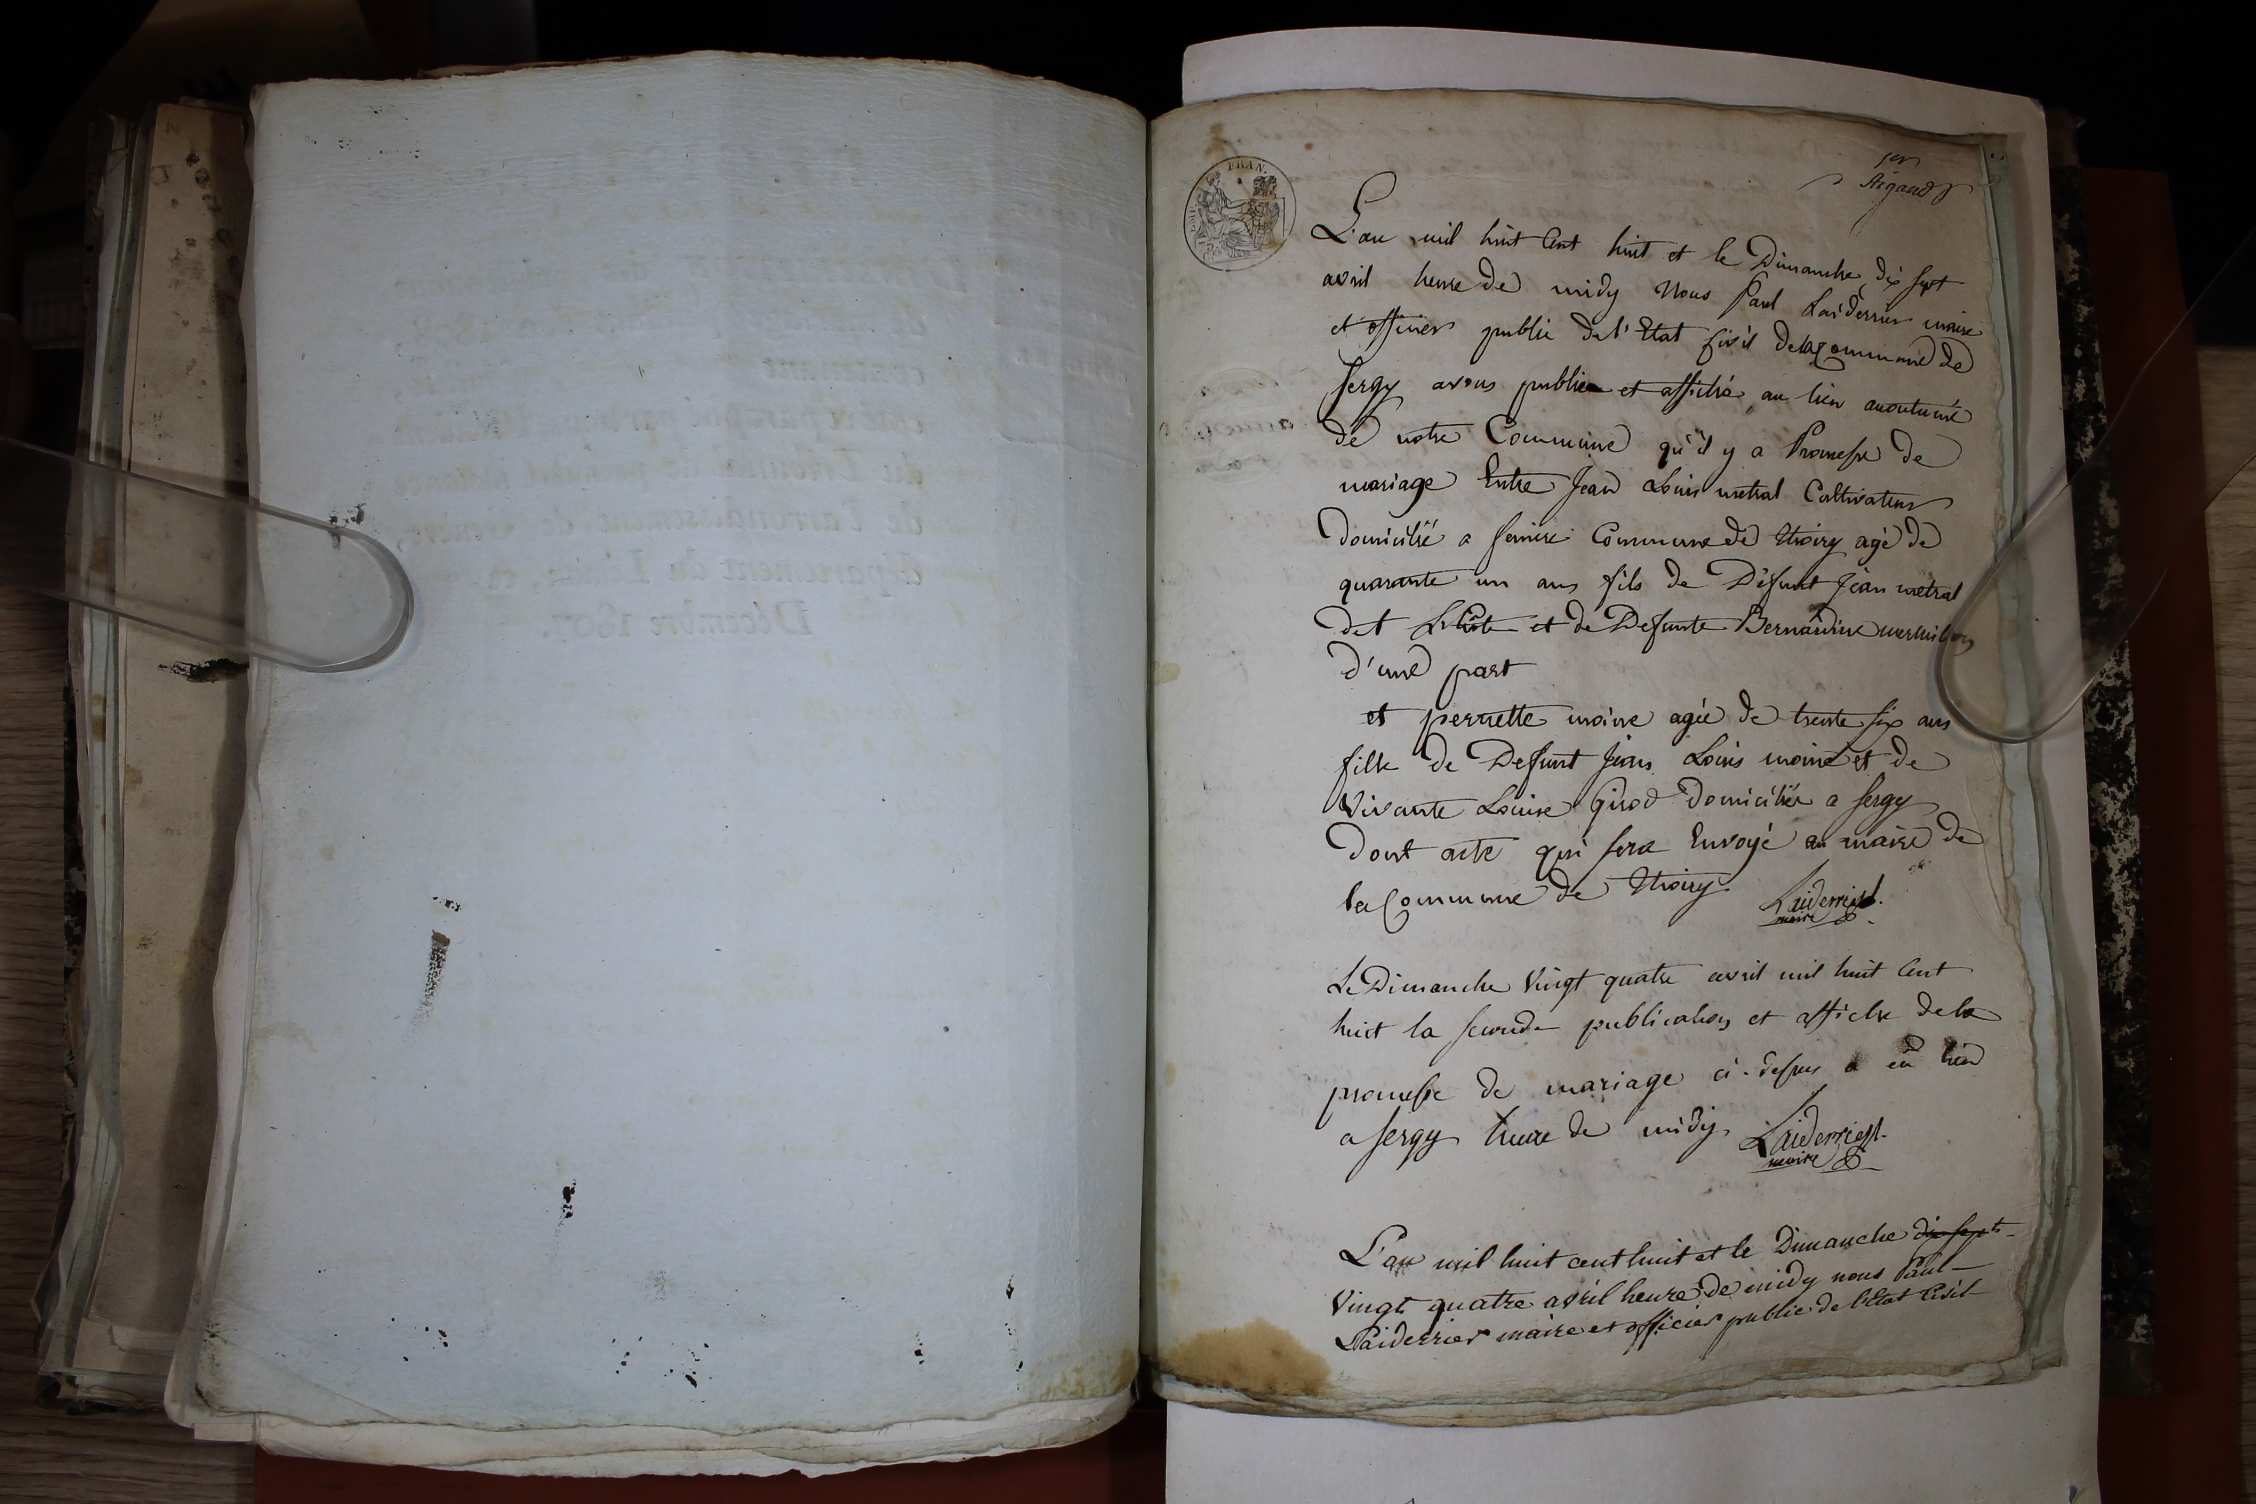 1er
Rigaud
FRAN.
L'an mil huit Cent huit et le Dimanche dix sept
avril heure de midy Nous Paul Laiderrier maire
et officier public de l'Etat sivil de la Commune de
Sergy avons publie et affiché au lieu acoutumé
de notre Commune qu'il y a Promesse de
mariage Entre Jean Louis metral Cultivateur
Domicilié a Commune de Thoiry agé de
quarante un ans fils de Défunt Jean metral
det et de Defunte Bernardine
d'une part
et pernette moine agée de trente six ans
fille de Defunt Jean Louis moine et de
Vivante Louise Girod Domiciliée a Sergy
Dont acte qui sera Envoyé au maire de
la Commune de Thoiry. Laiderrier
maire
Le Dimanche Vingt quatre avril mil huit Cent
huit la seconde publication et affiche de la
promesse de mariage ci-dessus a eu lieu
a Sergy heure de midy Laiderrier
maire
L'an mil huit cent huit et le Dimanche dix sept
Vingt quatre avril heure de midy nous Paul
Laiderrier maire et officier public de l'Etat Civil